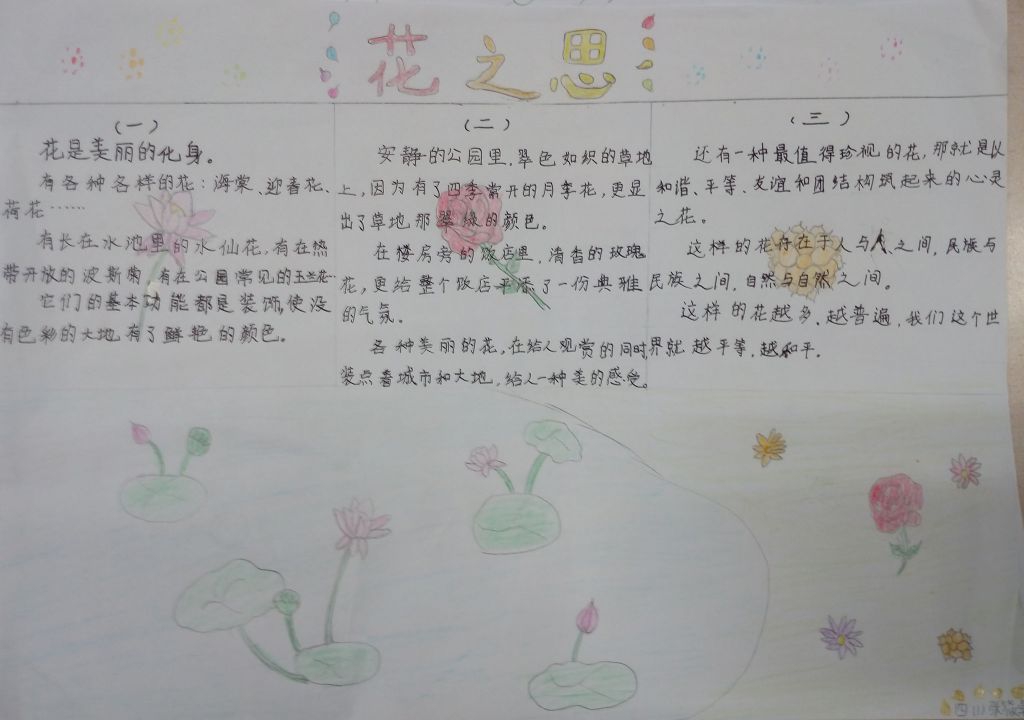 花之思
（一）
花是美丽的化身。
有各种各样的花：海棠、迎春花、
荷花……
有长在水池里的水仙花，有在热
带开放的波斯菊，有在公园常见的玉兰花
它们的基本功能都是装饰，使没
有色彩的大地有了鲜艳的颜色。
（二）
安静的公园里，翠色如织的草地
上，因为有了四季常开的月季花，更显
出了草地那翠绿的颜色。
在楼房旁的饭店里，清香的玫瑰
花，更给整个饭店平添了一份典雅
的气氛。
各种美丽的花，在给人观赏的同时
装点着城市和大地，给人一种美的感受。
（三）
还有一种最值得珍视的花，那就是以
和谐、平等、友谊和团结构筑起来的心灵
之花。
这样的花存在于人与人之间，民族与
民族之间，自然与自然之间。
这样的花越多、越普遍，我们这个世
界就越平等，越和平。
四川